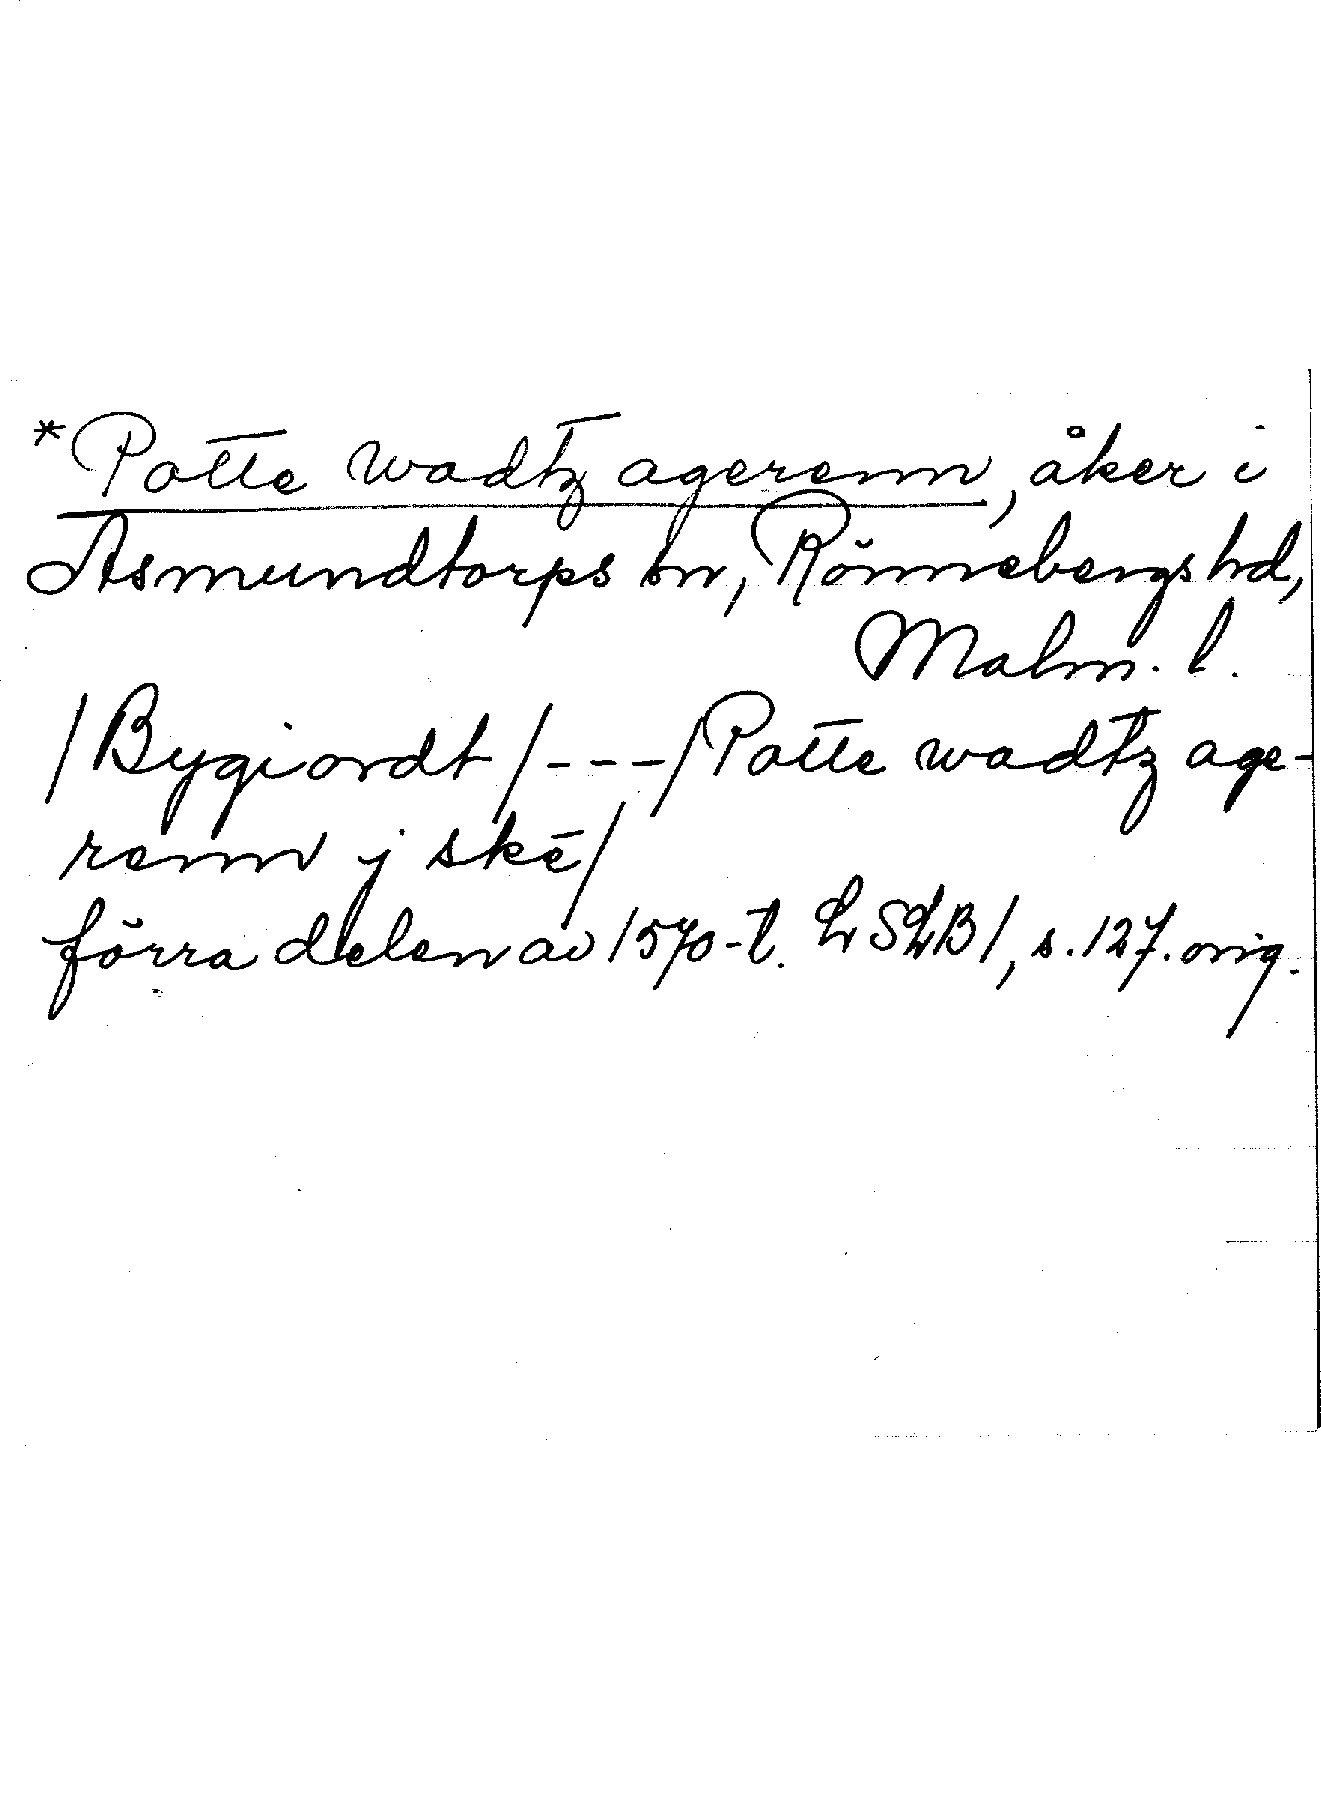 *Potte wadtz agerenn, åker i
Asmundtorps sn, Rönnebergs hd,
Malm. l.
/Bygiordt/---/Potte wadtz age-
renn j skē/
förra delen av 1570-t. LSLB1, s.127. orig.